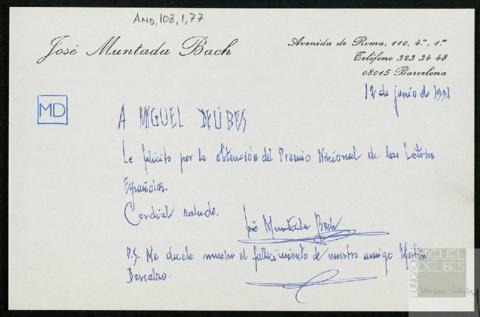 AMD, 103, 1, 77
José Muntada Bach
Avenida de Roma, 110, 4.º, 1.ª
Teléfono 323 34 48
08015 Barcelona
12 de junio de 1991
MD
A MIGUEL DELIBES
Le felicito por la obtención del Premio Nacional de las Letras
Españolas.
Cordial saludo.
José Muntada Bach
P.S. Me duele mucho el fallecimiento de nuestro amigo Martín
Descalzo.
FUNDACIÓN
MIGUEL
DELIBES